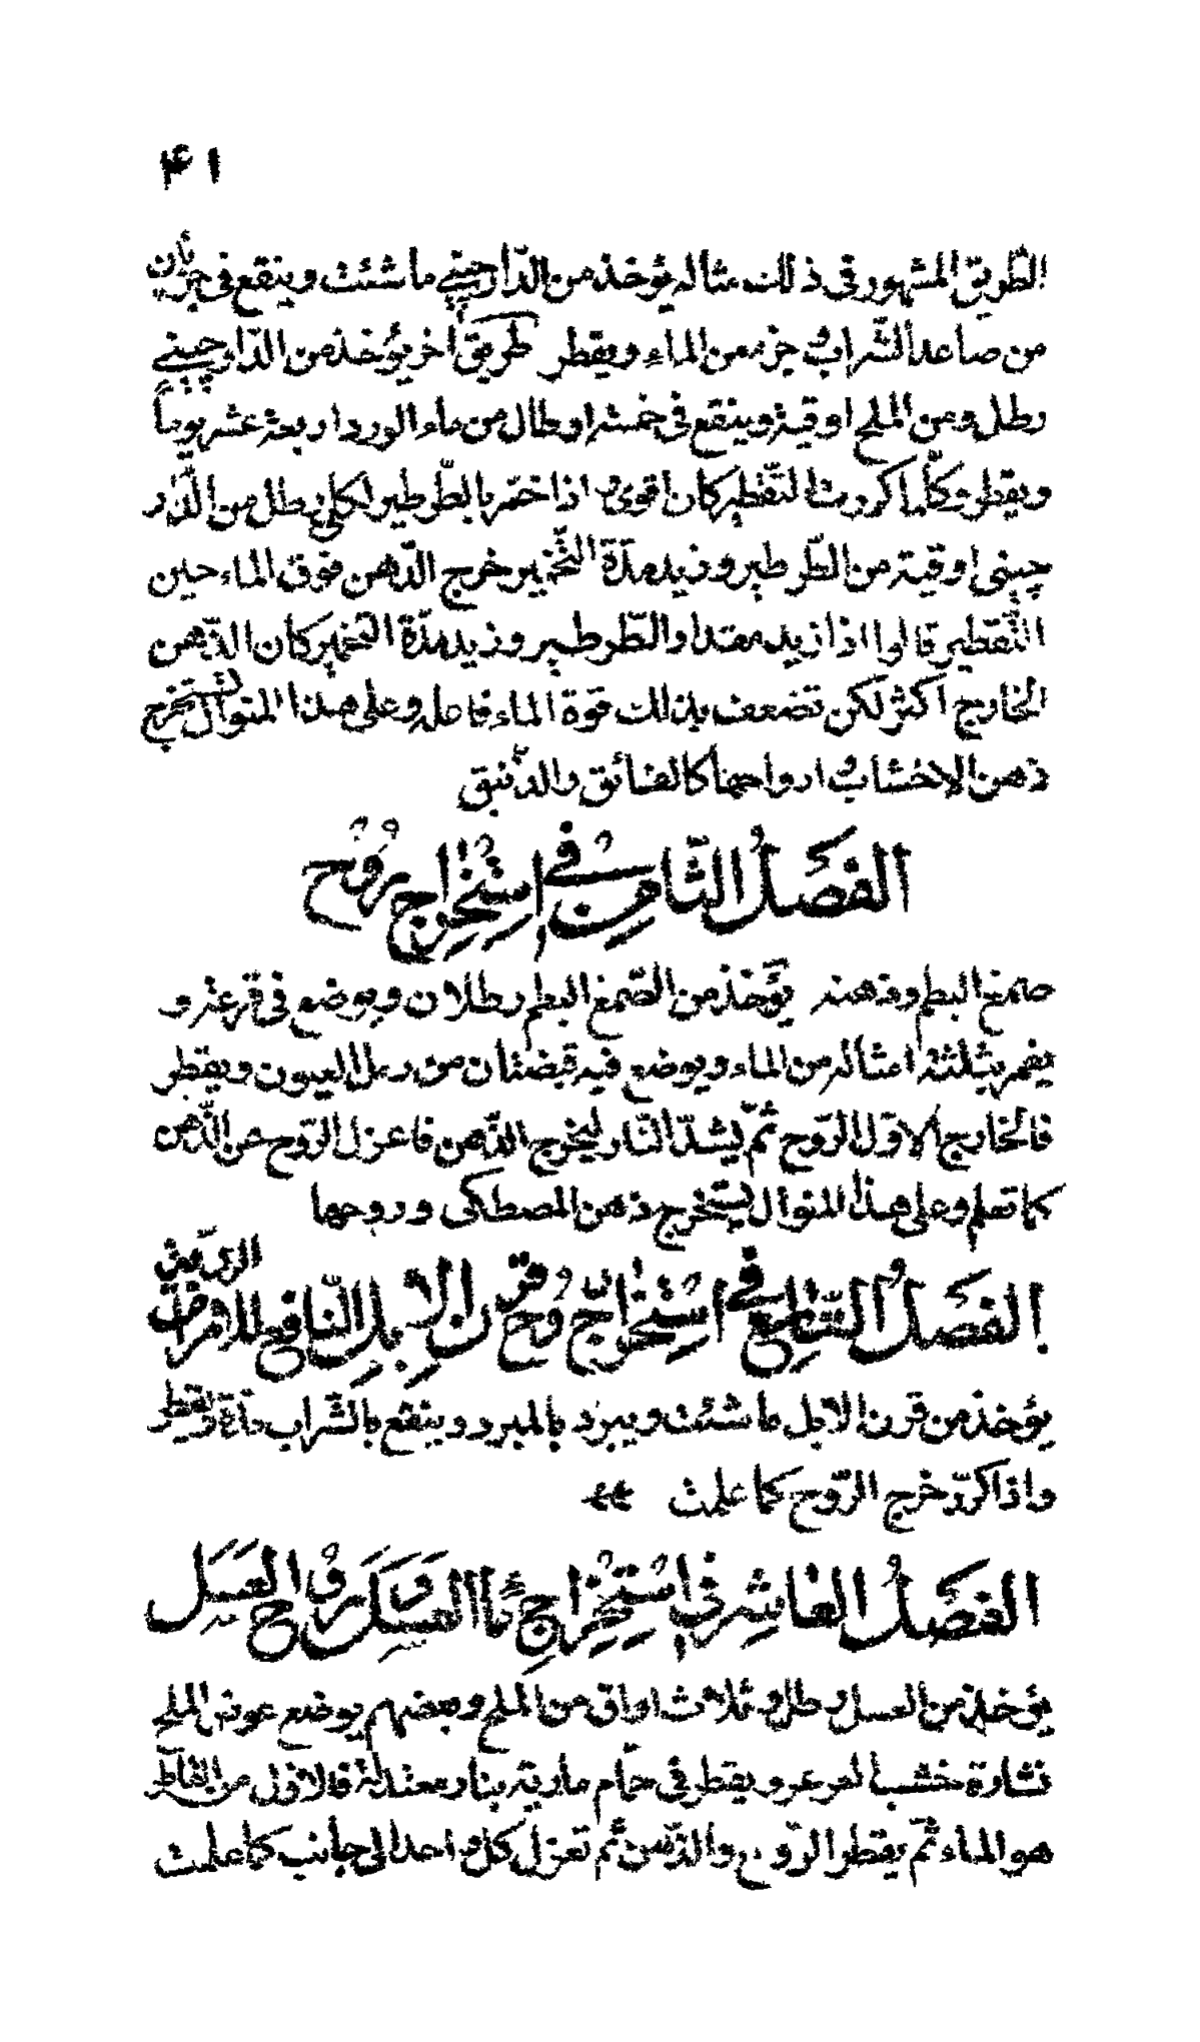 ۴۱
الطّريق المشهور فى ذلك مثاله يؤخذ من الدّارچينے ما شئت وينقع فى جزئان
من صاعد الشّراب و جزء من الماء ويقطر طريق اخر يؤخذ من الدّارچينے
رطل ومن الملح اوقية وينقع فى خمسة ارطال من ماء الورد اربعة عشر يوماً
ويقطر وكلّما كررت التّقطير كان اقوى و اذا خمّر بالطّرطير لكل رطل من الدّار
چينى اوقية من الطّرطير وزيد مدّة التّخمير خرج الدّهن فوق الماء حين
التّقطير قالوا اذا زيد مقدار الطّرطير وزيد مدّة التخمير كان الدّهن
الخارج اكثر لكن تضعف بذلك قوة الماء فاعله وعلى هذا المنوال تستخرج
دهن الاخشاب و ارواحها كالفنائق والدّنبق
الفَصَلُ الثّامِن فے اِسْتِخْراج رُوُح
صمغ البطم ودهنه يؤخذ من الصّمغ البطم رطلان ويوضع فى قرعة و
يغمر بثلثة امثاله من الماء ويوضع فيه قبضتان من رمل العيون ويقطر
فالخارج الاوّل الرّوح ثمّ يشدّ النّار ليخرج الدّهن فاعزل الرّوح عن الدّهن
كما تعلم وعلى هذا المنوال يستخرج دهن المصطكى وروحها
الفَصَلُ التّاسِع فے اسْتِخْراج رُوح قرن الايل النّافع للامراض الرديّة
يؤخذ من قرن الايل ما شئت ويبرد بالمبرد وينقع بالشّراب مدّة ويقطر
واذا كرّر خرج الرّوح كما علمت
الفَصَلُ العَاشِر فى اسْتِخْراج ماء العسل وَسكر و رُوح العَسَل
يؤخذ من العسل رطل و ثلاث اواق من الملح وبعضهم يوضع عوض الملح
نشارة خشب العرعر ويقطر فى حمّام مارية بنار معتدلة فالاوّل من القاطر
هو الماء ثمّ يقطر الرّوح والدّهن ثم تعزل كل واحد الى جانب كما علمت